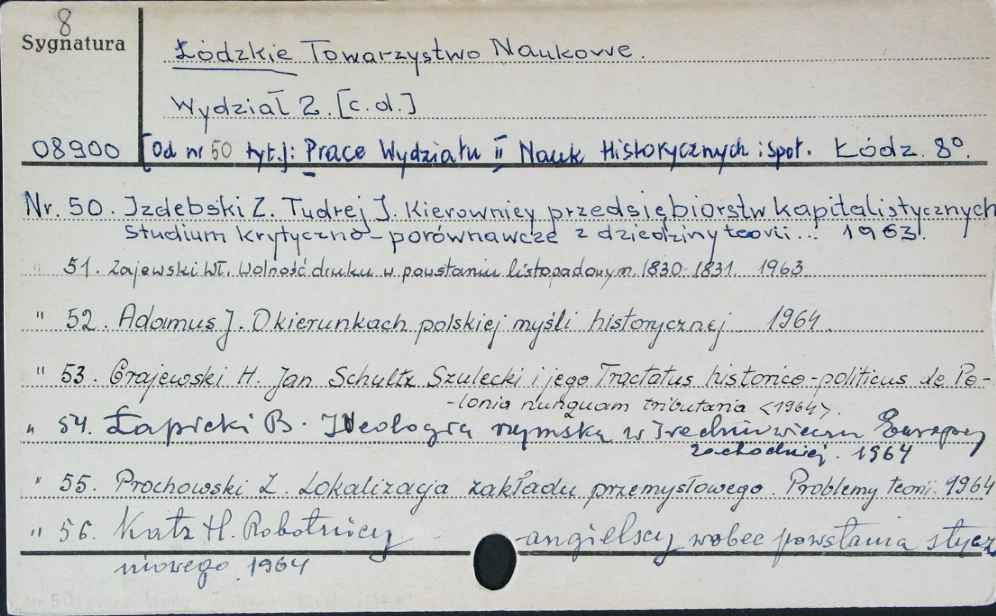 8
Sygnatura
Łódzkie Towarzystwo Naukowe.
Wydział 2. [c.d.]
08900 [Od nr 50 tyt.]: Prace Wydziału II Nauk Historycznych i Społ. Łódz. 8°.
Nr. 50. Izdebski Z. Tudrej J. Kierownicy przedsiębiorstw kapitalistycznych
Studium krytyczno-porównawcze z dziedziny teorii... 1963.
" 51. Zajewski Wł. Wolność druku w powstaniu listopadowym 1830-1831. 1963
" 52. Adamus J. O kierunkach polskiej myśli historycznej 1964.
" 53. Grajewski H. Jan Schultz Szulecki i jego Tractatus historico-politicus de Po-
-lonia nunquam tributaria <1964>.
" 54. Łapicki B. Ideologia rzymska w średniowieczu Europy
zachodniej. 1964
" 55. Prochowski Z. Lokalizacja zakładu przemysłowego. Problemy teorii. 1964
" 56. Katz H. Robotnicy - angielscy wobec powstania stycz
niowego 1964